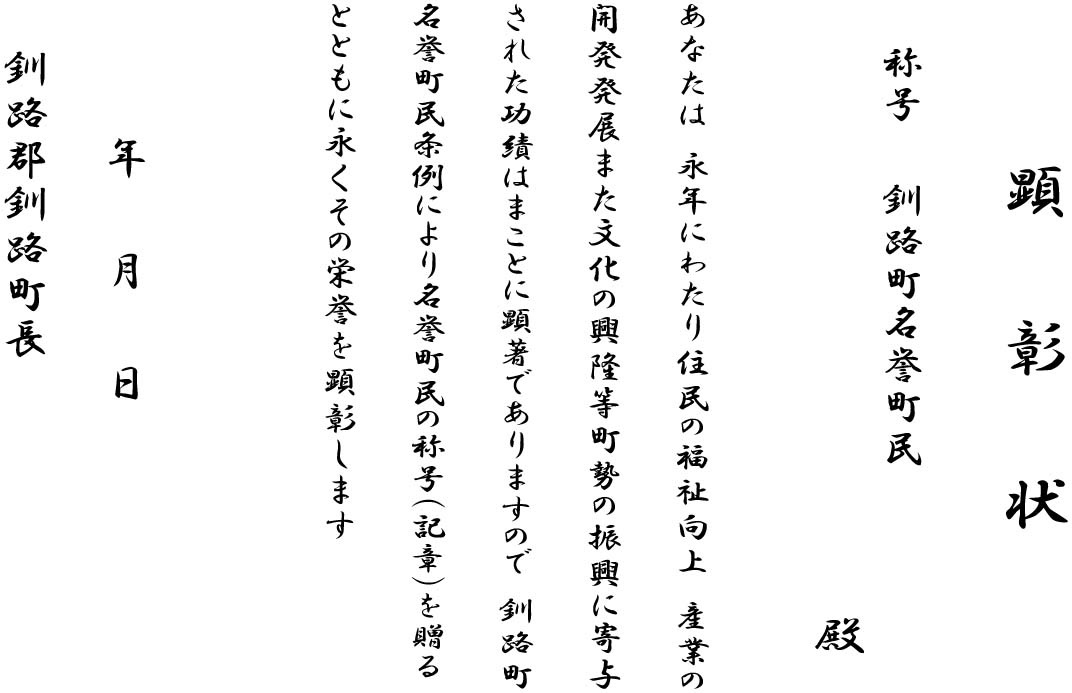 顕彰状
称号　釧路町名誉町民
殿
あなたは　永年にわたり住民の福祉向上　産業の
開発発展また文化の興隆等町勢の振興に寄与
された功績はまことに顕著でありますので　釧路町
名誉町民条例により名誉町民の称号(記章)を贈る
とともに永くその栄誉を顕彰します
年　月　日
釧路郡釧路町長